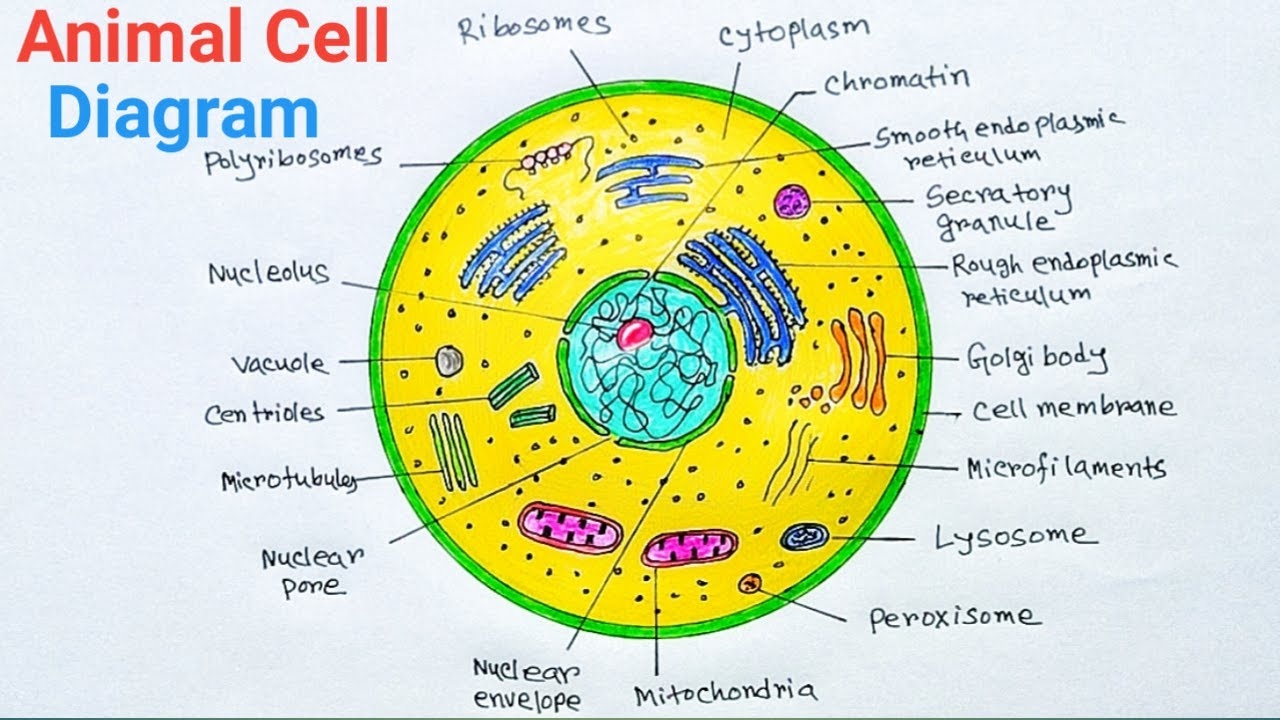 Animal Cell
Diagram
Ribosomes
Cytoplasm
Chromatin
Smooth endoplasmic
reticulum
Secratory
granule
Rough endoplasmic
reticulum
Golgi body
Cell membrane
Microfilaments
Lysosome
Peroxisome
Mitochondria
Nuclear
envelope
Nuclear
pore
Microtubules
Centrioles
Vacuole
Nucleolus
Polyribosomes